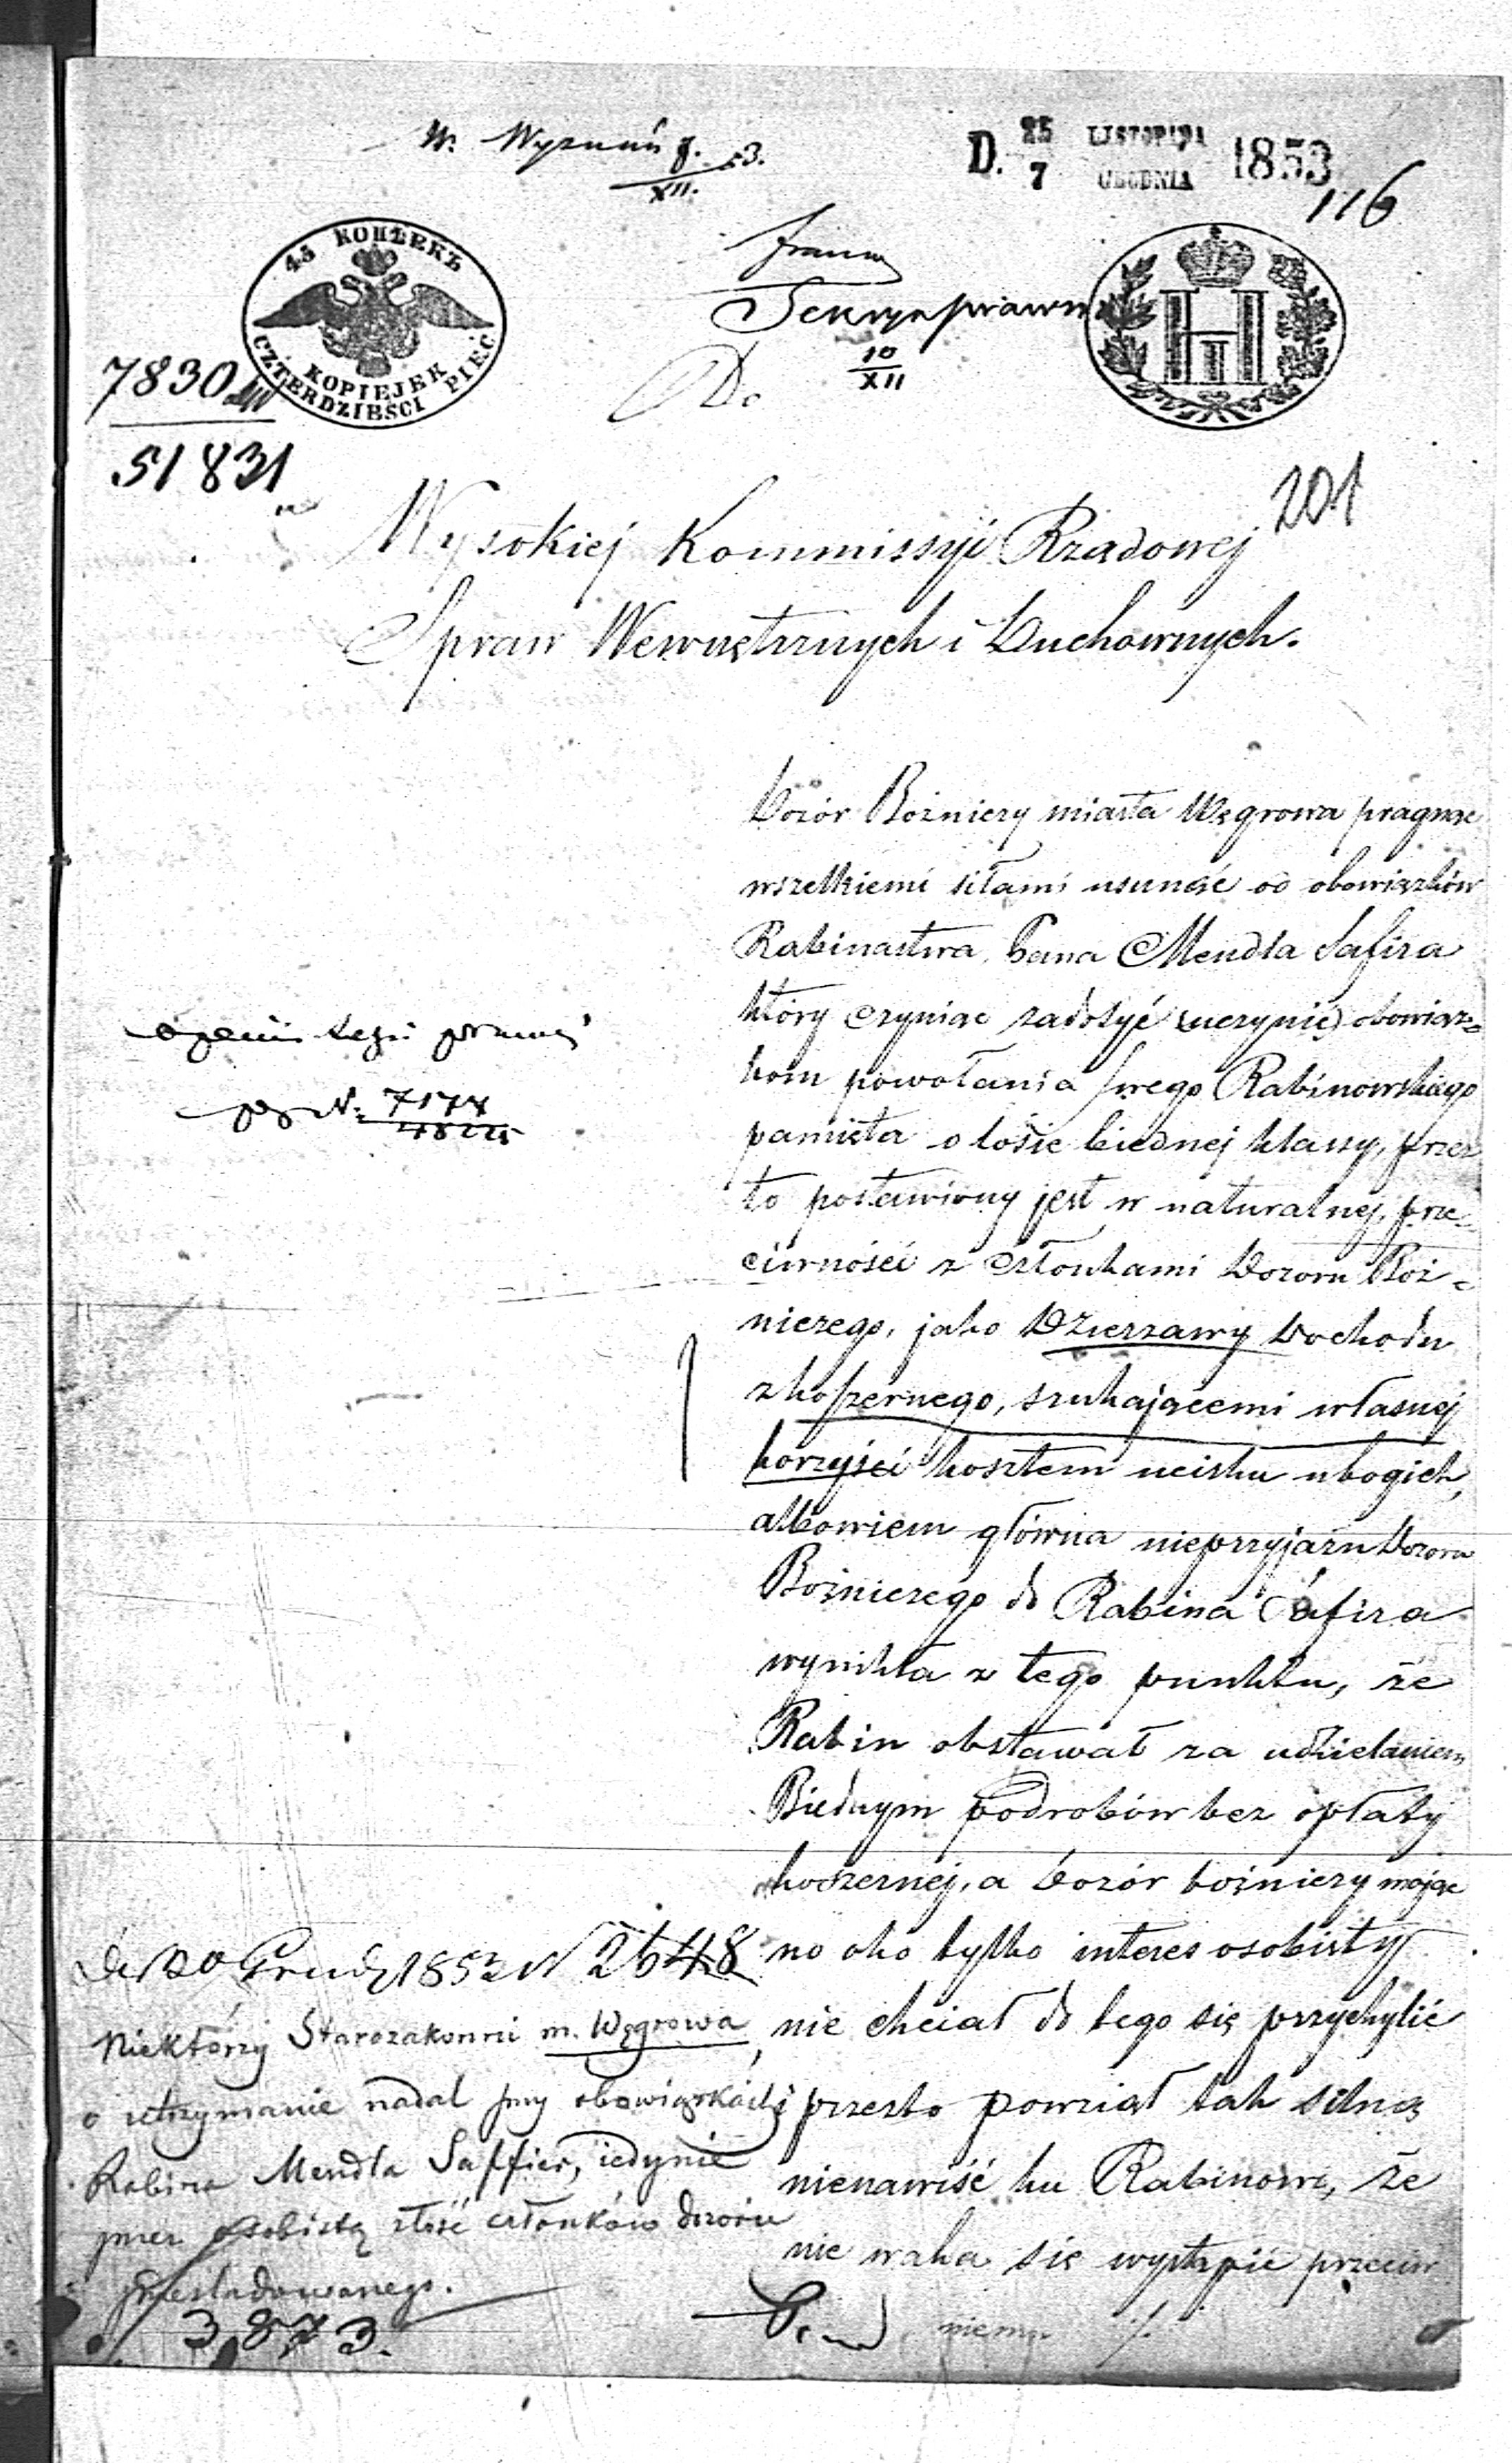 W. Wyznań 8. 53.
XII.
D. 25 LISTOPADA 1853
7 GRUDNIA
116
45 КОПѢЕКЪ
KOPIEJEK
CZTERDZIEŚCI PIĘĆ
10
XII
Do
7830
51831
201
Wysokiej Kommissyi Rządowej
Spraw Wewnętrznych i Duchownych.
Dozór Bóżniczy miasta Węgrowa pragnąc
wszelkiemi siłami usunąść od obowiązków
Rabinastwa Pana Mendla Safira
który czyniąc zadosyć (uczynić) obowiąz=
kom powołania swego Rabinowskiego
pamięta o losie biednej klassy, przez
to postawiony jest w naturalnej, prze=
ciwności z członkami Dozoru Boż=
niczego, jako Dzierzawy Dochodu
z koszernego, szukającemi własnej
korzyści kosztem ucisku ubogich,
albowiem główna nieprzyjaźń Dozoru
Bożniczego do Rabina Safira
wynikła z tego punktu, że
Rabin obstawał za udzielaniem
Biednym podrobów bez opłaty
koszernej, a Dozór bożniczy mając
no oko tylko interes osobisty
nie chciał do tego się przychylić
i przeto powziął tak silną
nienawiść ku Rabinowi, że
nie waha się wystąpić przeciw
niemu ./.
N: 7174
48225
1853 N 2648
Niektórzy Starozakonni m. Węgrowa,
o utrzymanie nadal przy obowiązkach
Rabina Mendla Saffier, iedynie
przez osobistą złość członków dozoru
prześladowanego.
3,873.